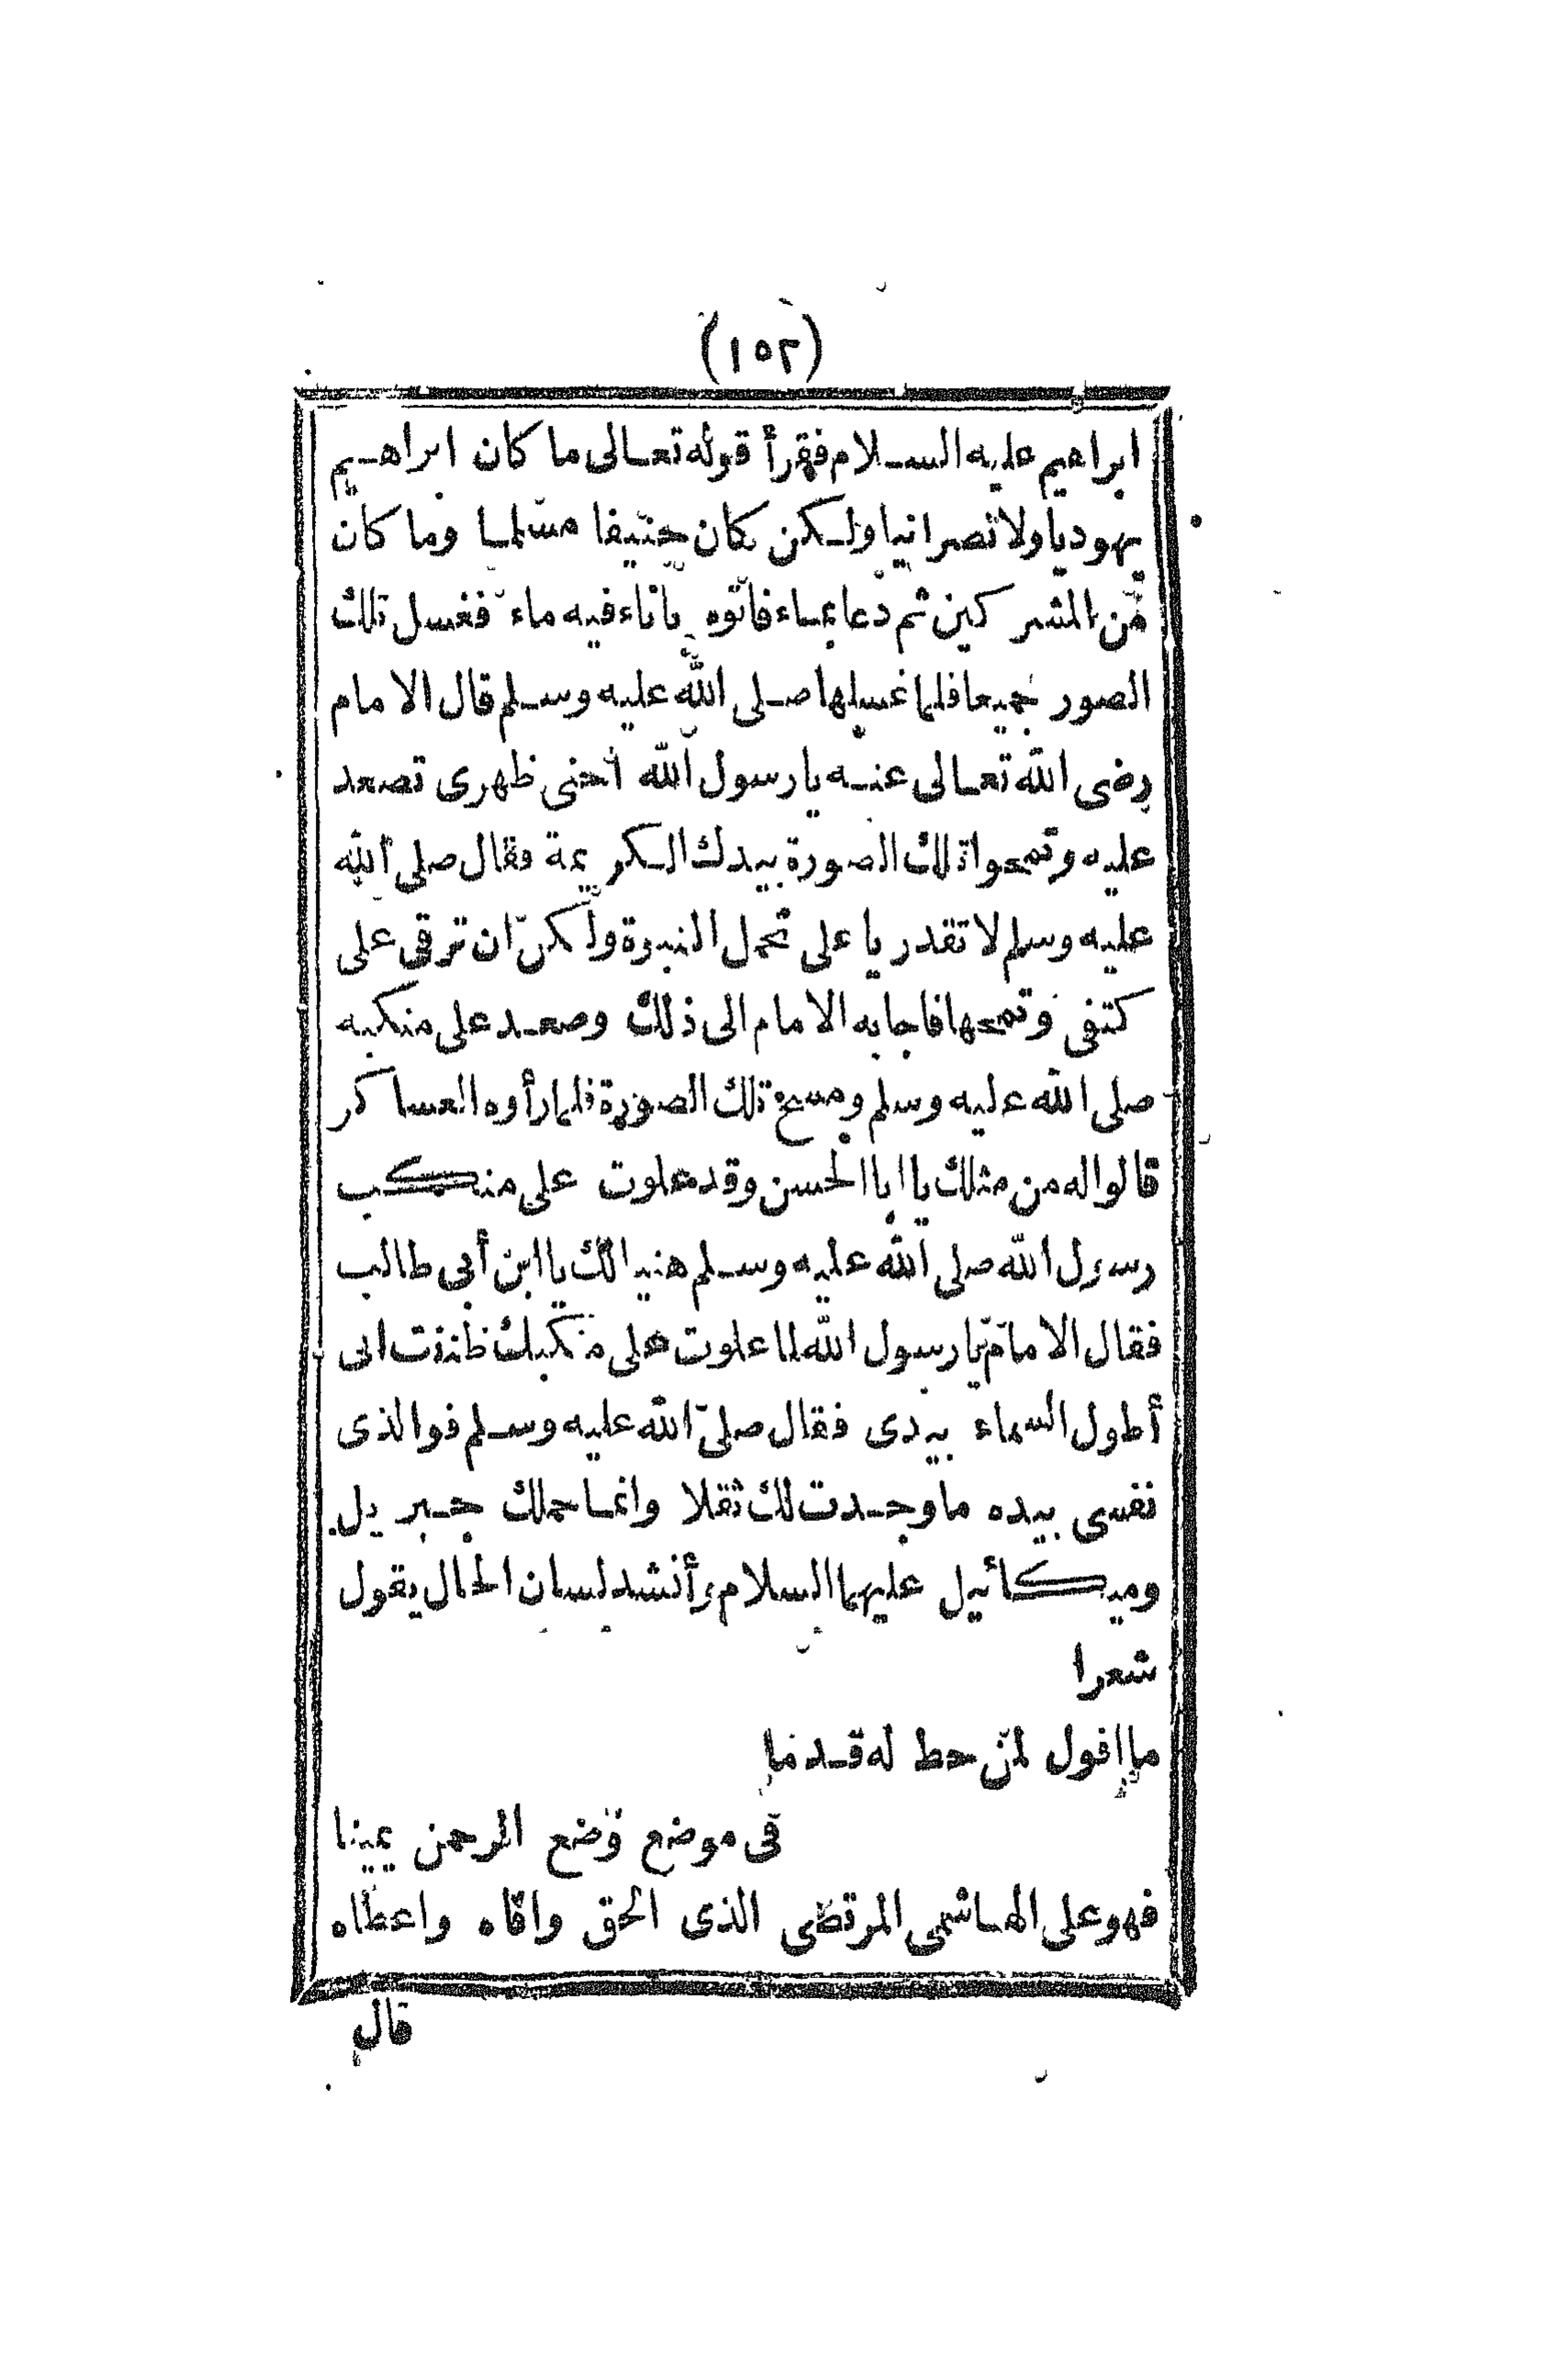 (١٥٢)
ابراهيم عليه السلام فقرأ قوله تعالى ما كان ابراهيم
يهوديا ولا نصرانيا ولكن كان حنيفا مسلما وما كان
من المشركين ثم دعا بماء فأتوه باناء فيه ماء فغسل تلك
الصور جميعا فلما غسلها صلى الله عليه وسلم قال الامام
رضى الله تعالى عنه يارسول الله أحنى ظهرى تصعد
عليه وتمحوا تلك الصورة بيدك الكريمة فقال صلى الله
عليه وسلم لا تقدر يا على تحمل النبوة ولكن ان ترقى على
كتفى وتمحها فاجابه الامام الى ذلك وصعد على منكبيه
صلى الله عليه وسلم ومسح تلك الصورة فلما رأوه العساكر
قالوا له من مثلك يا ابا الحسن وقد علوت على منكب
رسول الله صلى الله عليه وسلم هنيا لك يا ابن أبى طالب
فقال الامام يارسول الله لما علوت على منكبك ظننت انى
أطول السماء بيدى فقال صلى الله عليه وسلم فوالذى
نفسى بيده ما وجدت لك ثقلا وانما حملك جبريل
وميكائيل عليهما السلام وأنشد لسان الحال يقول
شعرا
ما اقول لمن حط له قدما
فى موضع وضع الرحمن يمينا
فهو على الهاشمى المرتضى الذى الحق وافاه واعطاه
قال